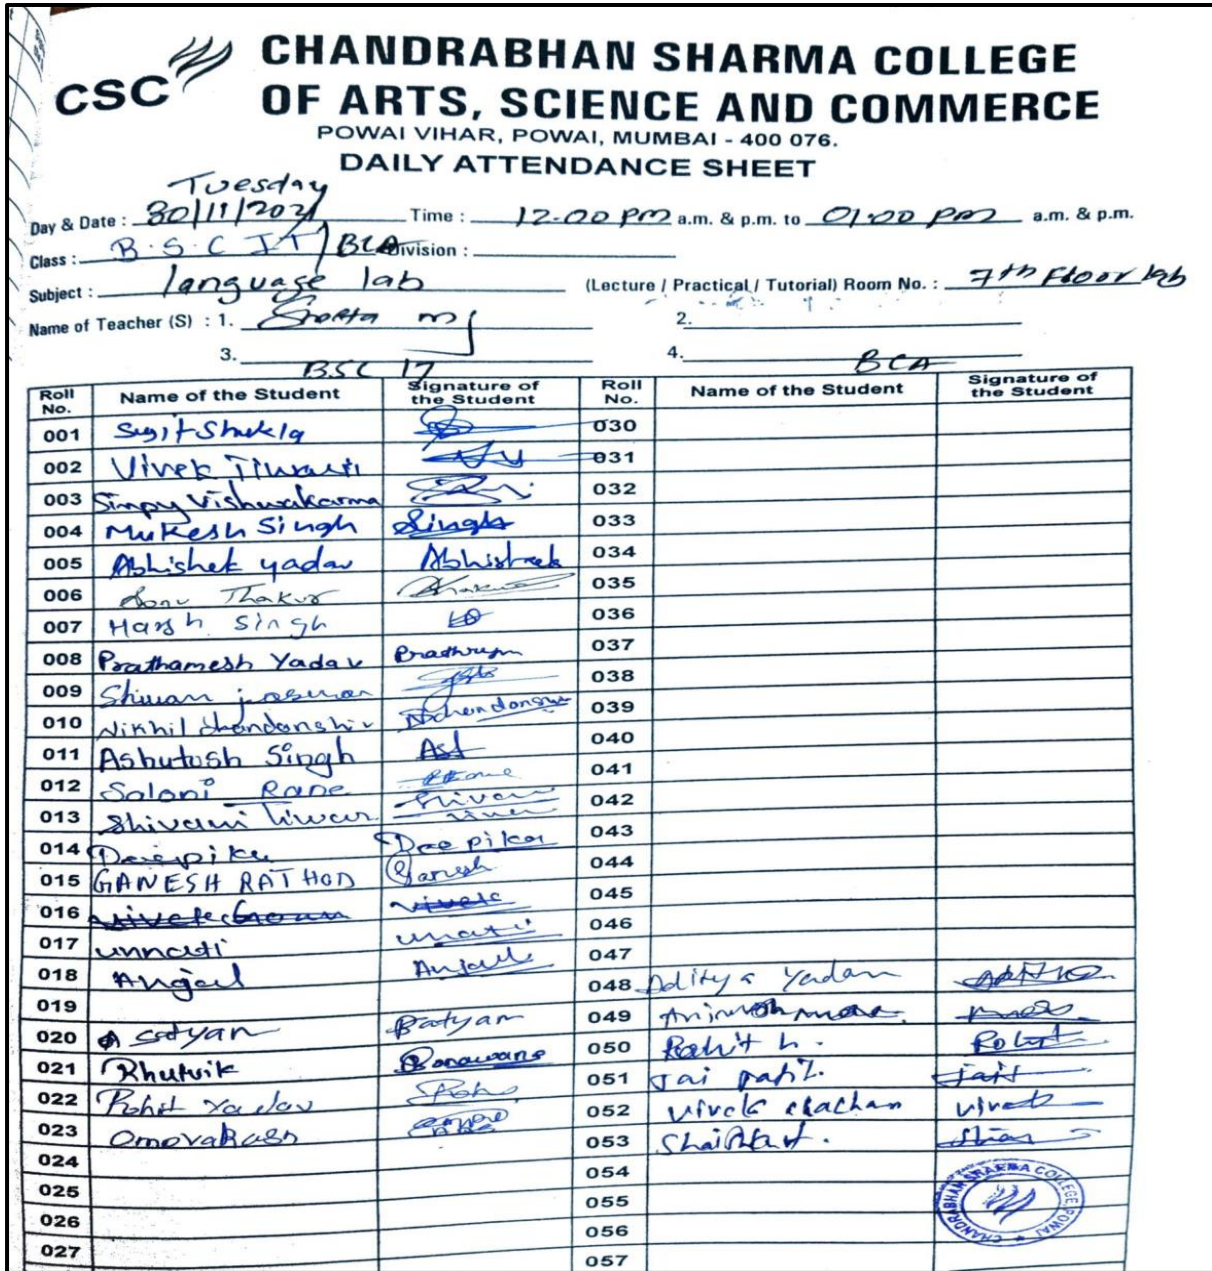 CSC
CHANDRABHAN SHARMA COLLEGE
OF ARTS, SCIENCE AND COMMERCE
POWAI VIHAR, POWAI, MUMBAI - 400 076.
DAILY ATTENDANCE SHEET
Tuesday
Day & Date : 30/11/2021 Time : 12-00 PM a.m. & p.m. to 01:00 PM a.m. & p.m.
Class : B.S.C IT / BCA Division :
Subject : language lab (Lecture / Practical / Tutorial) Room No. : 7th Floor lab
Name of Teacher (S) : 1. 2.
3. 4.
BSC IT BCA
Roll No. Name of the Student Signature of the Student Roll No. Name of the Student Signature of the Student
001 Shukla 030
002 Vivek Tiwari 031
003 Simpy Vishwakarma 032
004 Mukesh Singh Singh 033
005 Abhishek yadav Abhishek 034
006 Sonu Thakur 035
007 Harsh Singh 036
008 Prathamesh Yadav 037
009 038
010 Nikhil chandanshiv 039
011 Ashutosh Singh 040
012 Saloni Rane 041
013 Shivani Tiwari Shivani 042
014 Deepika Deepika 043
015 GANESH RATHOD Ganesh 044
016 Vivek 045
017 unnati unnati 046
018 Anjali Anjali 047
019 048 Aditya Yadav
020 Satyam Satyam 049
021 Rhutvik 050 Rohit h.
022 Rohit Yadav 051 Jai patil
023 052 vivek vivek
024 053
025 054
026 055
027 056
057
CHANDRABHAN SHARMA COLLEGE, POWAI